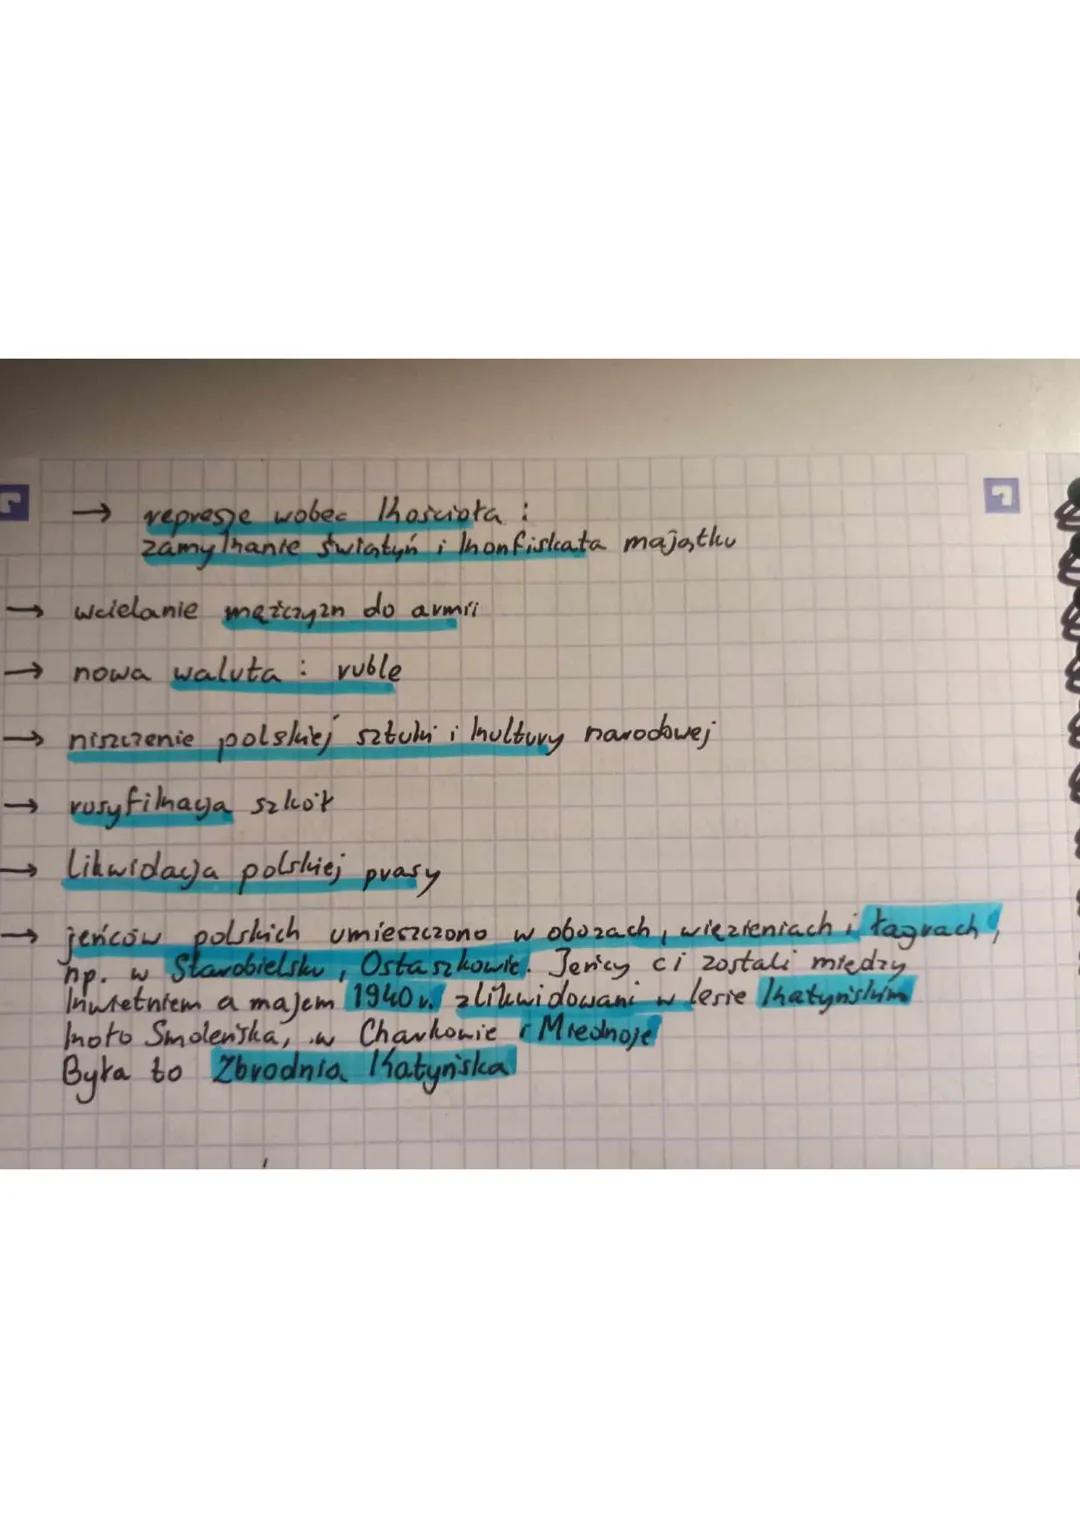 → represje wobec Kościoła :
zamykanie świątyń i konfiskata majątku
→ wcielanie mężczyzn do armii
→ nowa waluta : ruble
→ niszczenie polskiej sztuki i kultury narodowej
→ rusyfikacja szkół
→ likwidacja polskiej prasy
→ jeńców polskich umieszczono w obozach, więzieniach i łagrach,
np. w Starobielsku, Ostaszkowie. Jeńcy ci zostali między
kwietniem a majem 1940 r. zlikwidowani w lesie Katyńskim
koło Smoleńska, w Charkowie i Miednoje
Była to Zbrodnia Katyńska